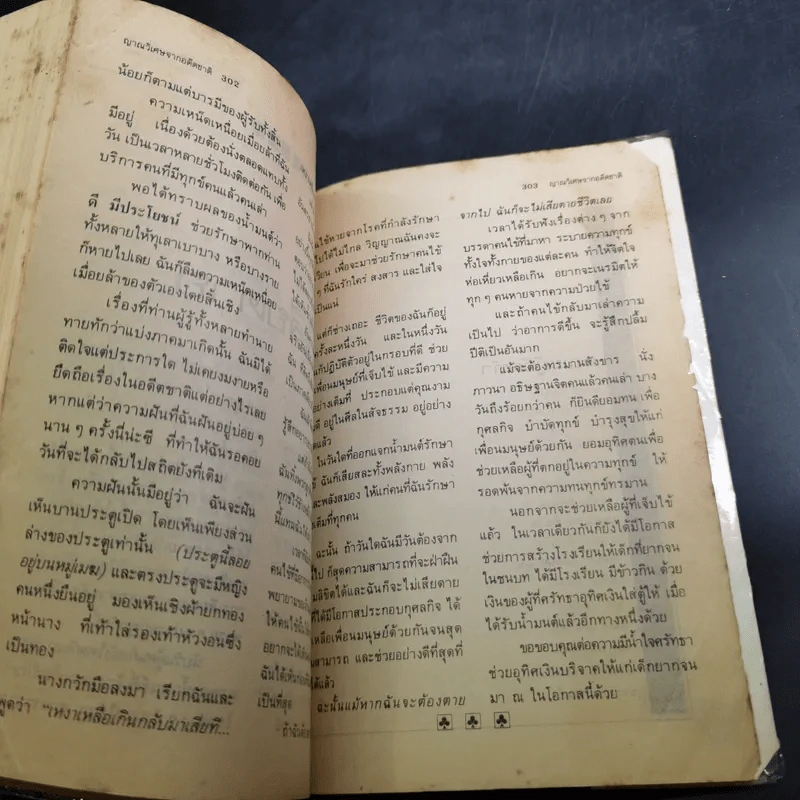 ญาณวิเศษจากอดีตชาติ 302
น้อยก็ตามแต่บารมีของผู้รับทั้งสิ้น
ความเหน็ดเหนื่อยเมื่อยล้าที่ฉัน
มีอยู่ เนื่องด้วยต้องนั่งตลอดแทบทั้ง
วัน เป็นเวลาหลายชั่วโมงติดต่อกัน เพื่อ
บริการคนที่มีทุกข์คนแล้วคนเล่า
พอได้ทราบผลของน้ำมนต์ว่า
ดี มีประโยชน์ ช่วยรักษาพวกท่าน
ทั้งหลายให้ทุเลาเบาบาง หรือบางราย
ก็หายไปเลย ฉันก็ลืมความเหน็ดเหนื่อย
เมื่อยล้าของตัวเองโดยสิ้นเชิง
เรื่องที่ท่านผู้รู้ทั้งหลายทำนาย
ทายทักว่าแบ่งภาคมาเกิดนั้น ฉันมิได้
ติดใจแต่ประการใด ไม่เคยงมงายหรือ
ยึดถือเรื่องในอดีตชาติแต่อย่างไรเลย
หากแต่ว่าความฝันที่ฉันฝันอยู่บ่อยๆ
นานๆ ครั้งนี่น่ะซี ที่ทำให้ฉันรอคอย
วันที่จะได้กลับไปสถิตยังที่เดิม
ความฝันนั้นมีอยู่ว่า ฉันจะฝัน
เห็นบานประตูเปิด โดยเห็นเพียงส่วน
ล่างของประตูเท่านั้น (ประตูนี้ลอย
อยู่บนหมู่เมฆ) และตรงประตูจะมีหญิง
คนหนึ่งยืนอยู่ มองเห็นเชิงผ้ายกทอง
หน้านาง ที่เท้าใส่รองเท้าหัวงอนซึ่ง
เป็นทอง
นางกวักมือลงมา เรียกฉันและ
พูดว่า "เหงาเหลือเกินกลับมาเสียที...
คนไข้ที่
พยายาม
ให้คนไข้
อยากจะ
ฉันได้เห็น
เป็นที่สุด
ถ้าฉัน
303 ญาณวิเศษจากอดีตชาติ
นไข้หายจากโรคที่กำลังรักษา
ไปได้ไม่ไกล วิญญาณฉันคงจะ
เรียน เพื่อจะมาช่วยรักษาคนไข้
ๆ ที่ฉันรักใคร่ สงสาร และใส่ใจ
เป็นแน่
แต่ก็ช่างเถอะ ชีวิตของฉันก็อยู่
ครั้งละหนึ่งวัน และในหนึ่งวัน
ก็ปฏิบัติตัวอยู่ในกรอบที่ดี ช่วย
เพื่อนมนุษย์ที่เจ็บไข้ และมีความ
อย่างเต็มที่ ประกอบแต่คุณงาม
ดี อยู่ในศีลในสัจธรรม อยู่อย่าง
แล้ว
ในวันใดที่ออกแจกน้ำมนต์รักษา
ข้ ฉันก็เสียสละทั้งพลังกาย พลัง
และพลังสมอง ให้แก่คนที่ฉันรักษา
เต็มที่ทุกคน
ฉะนั้น ถ้าวันใดฉันมีวันต้องจาก
ที่ไป ก็สุดความสามารถที่จะฝ่าฝืน
มลิขิตได้และฉันก็จะไม่เสียดาย
ที่ได้มีโอกาสประกอบกุศลกิจ ได้
เหลือเพื่อนมนุษย์ด้วยกันจนสุด
มสามารถ และช่วยอย่างดีที่สุดที่
ได้แล้ว
ฉะนั้นแม้หากฉันจะต้องตาย
จากไป ฉันก็จะไม่เสียดายชีวิตเลย
เวลาได้รับฟังเรื่องต่างๆ จาก
บรรดาคนไข้ที่มาหา ระบายความทุกข์
ทั้งใจทั้งกายของแต่ละคน ทำให้จิตใจ
ห่อเหี่ยวเหลือเกิน อยากจะเนรมิตให้
ทุก ๆ คนหายจากความป่วยไข้
และถ้าคนไข้กลับมาเล่าความ
เป็นไป ว่าอาการดีขึ้น จะรู้สึกปลื้ม
ปีติเป็นอันมาก
แม้จะต้องทรมานสังขาร นั่ง
ภาวนา อธิษฐานจิตคนแล้วคนเล่า บาง
วันถึงร้อยกว่าคน ก็ยินดียอมทน เพื่อ
กุศลกิจ บำบัดทุกข์ บำรุงสุขให้แก่
เพื่อนมนุษย์ด้วยกัน ยอมอุทิศตนเพื่อ
ช่วยเหลือผู้ที่ตกอยู่ในความทุกข์ ให้
รอดพ้นจากความทนทุกข์ทรมาน
นอกจากจะช่วยเหลือผู้ที่เจ็บไข้
แล้ว ในเวลาเดียวกันก็ยังได้มีโอกาส
ช่วยการสร้างโรงเรียนให้เด็กที่ยากจน
ในชนบท ได้มีโรงเรียน มีข้าวกิน ด้วย
เงินของผู้ที่ศรัทธาอุทิศเงินใส่ตู้ให้ เมื่อ
ได้รับน้ำมนต์แล้วอีกทางหนึ่งด้วย
ขอขอบคุณต่อความมีน้ำใจศรัทธา
ช่วยอุทิศเงินบริจาคให้แก่เด็กยากจน
มา ณ ในโอกาสนี้ด้วย